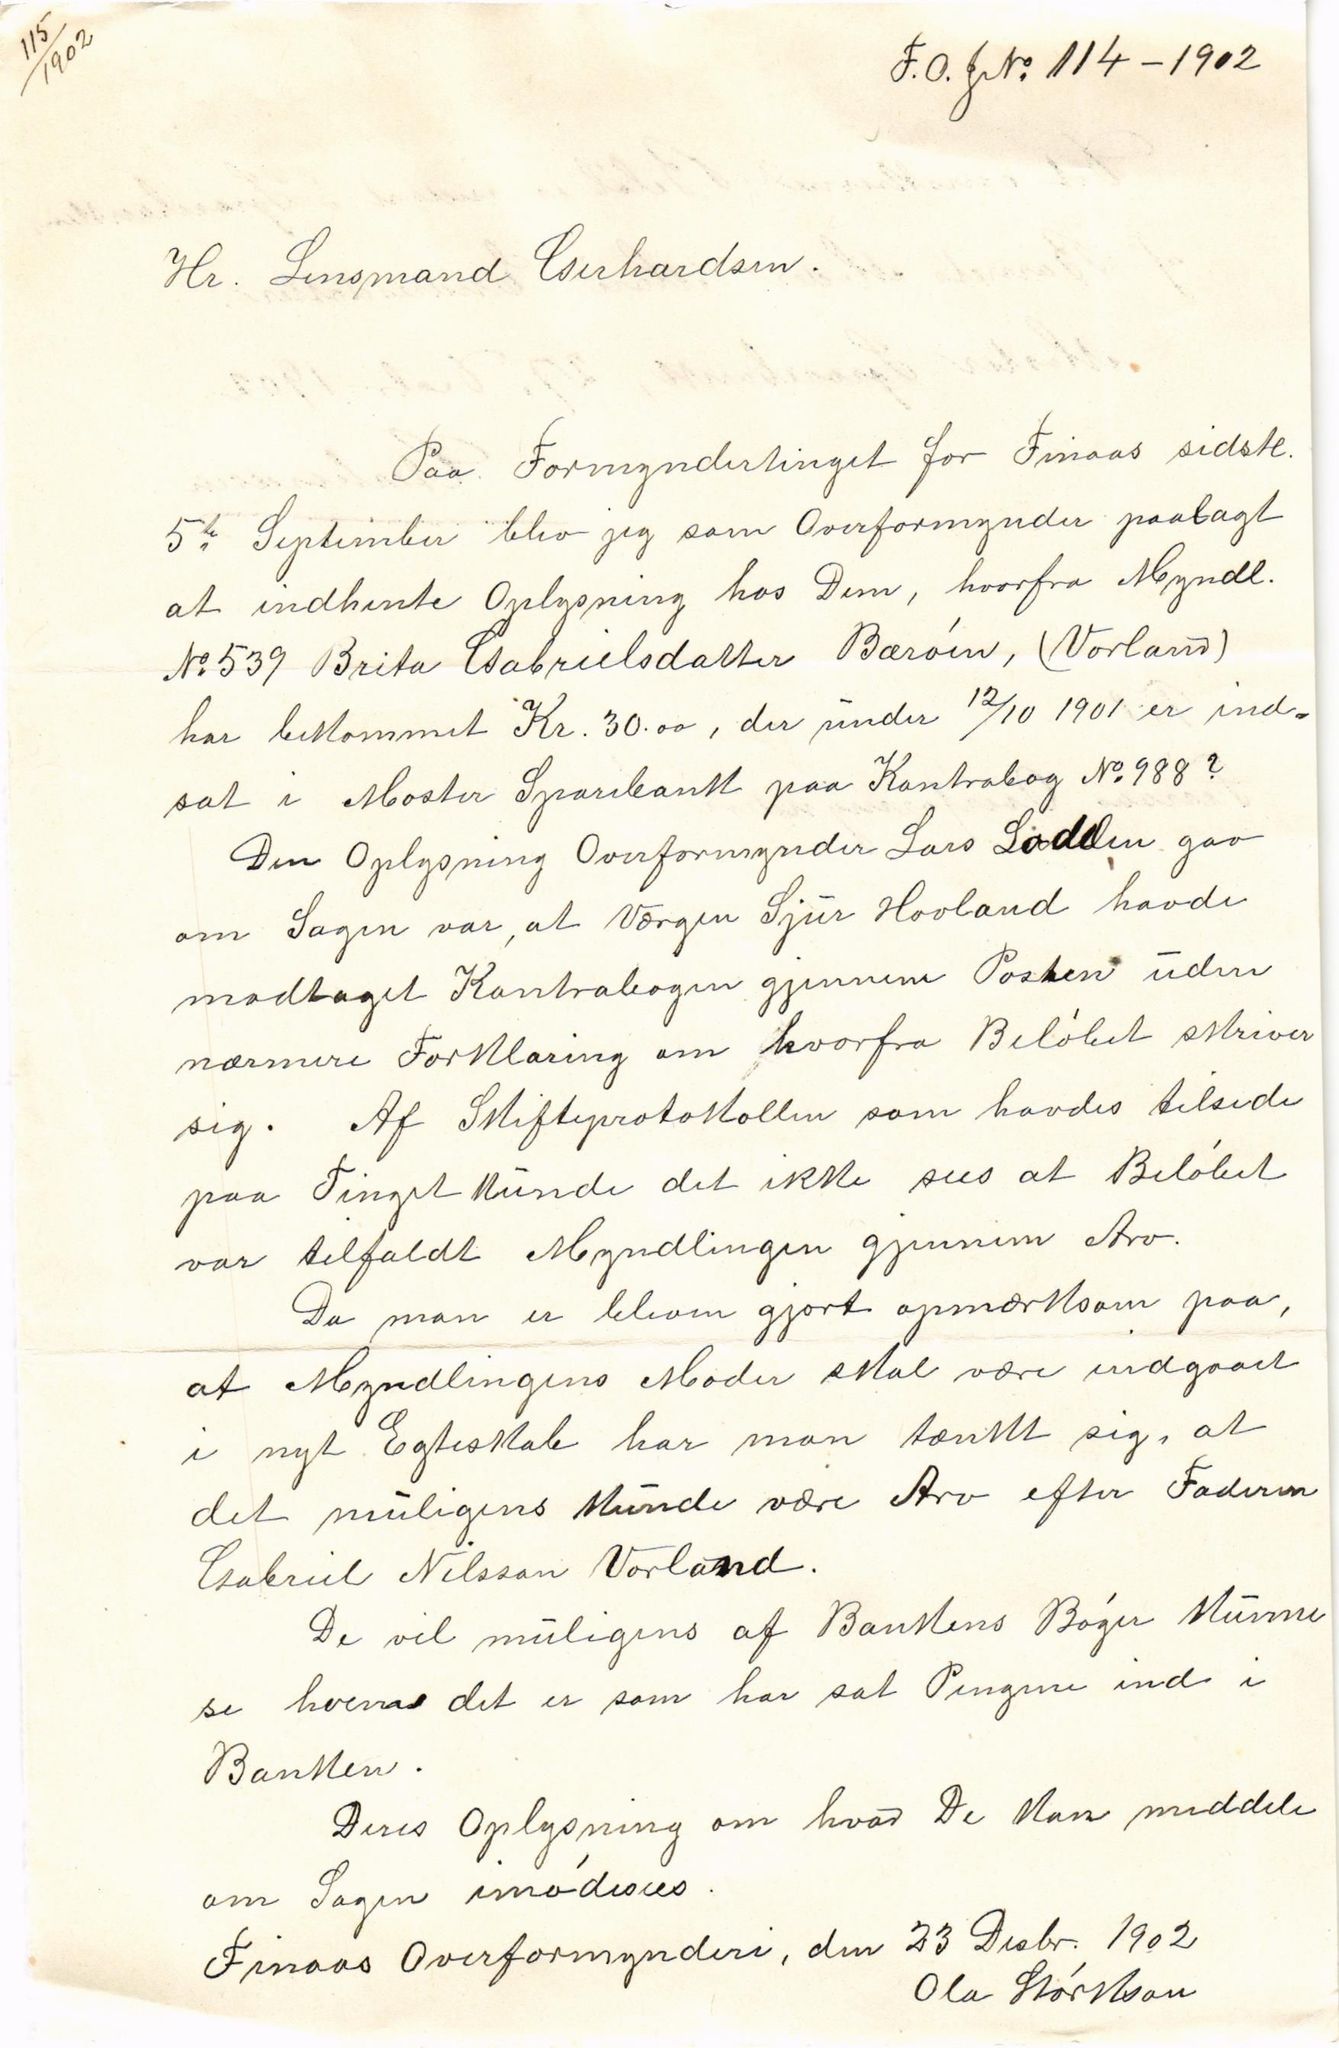 115/1902
F. O. J№. 114 – 1902
Hr. Lensmand Gerhardsen.
Paa Formyndertinget for Finaas sidste.
5te September blev jeg som Overformynder paalagt
at indhente Oplysning hos Dem, hvorfra Myndl.
№. 539 Brita Gabrielsdatter Bærøen, (Vorland)
har bekommet Kr. 30.00, der under 12/10 1901 er ind-
sat i Moster Sparebank paa Kontrabog №. 988?
Den Oplysning Overformynder Lars Lodden gav
om Sagen var, at Værgen Sjur Hovland havde
modtaget Kontrabogen gjennem Posten uden
nærmere Forklaring om hvorfra Beløbet skriver
sig. Af Skifteprotokollen som havdes tilstede
paa Tinget kunde det ikke sees at Beløbet
var tilfaldt Myndlingen gjennem Arv.
Da man er bleven gjort opmærksom paa,
at Myndlingens Moder skal være indgaaet
i nyt Egteskab har man tænkt sig, at
det muligens kunde være Arv efter Faderen
Gabriel Nilsson Vorland.
De vil muligens af Bankens Bøger kunne
se hvem det er som har sat Pengene ind i
Banken.
Deres Oplysning om hvad De kan meddele
om Sagen imødesees.
Finaas Overformynderi, den 23 Desbr. 1902
Ola Størkson